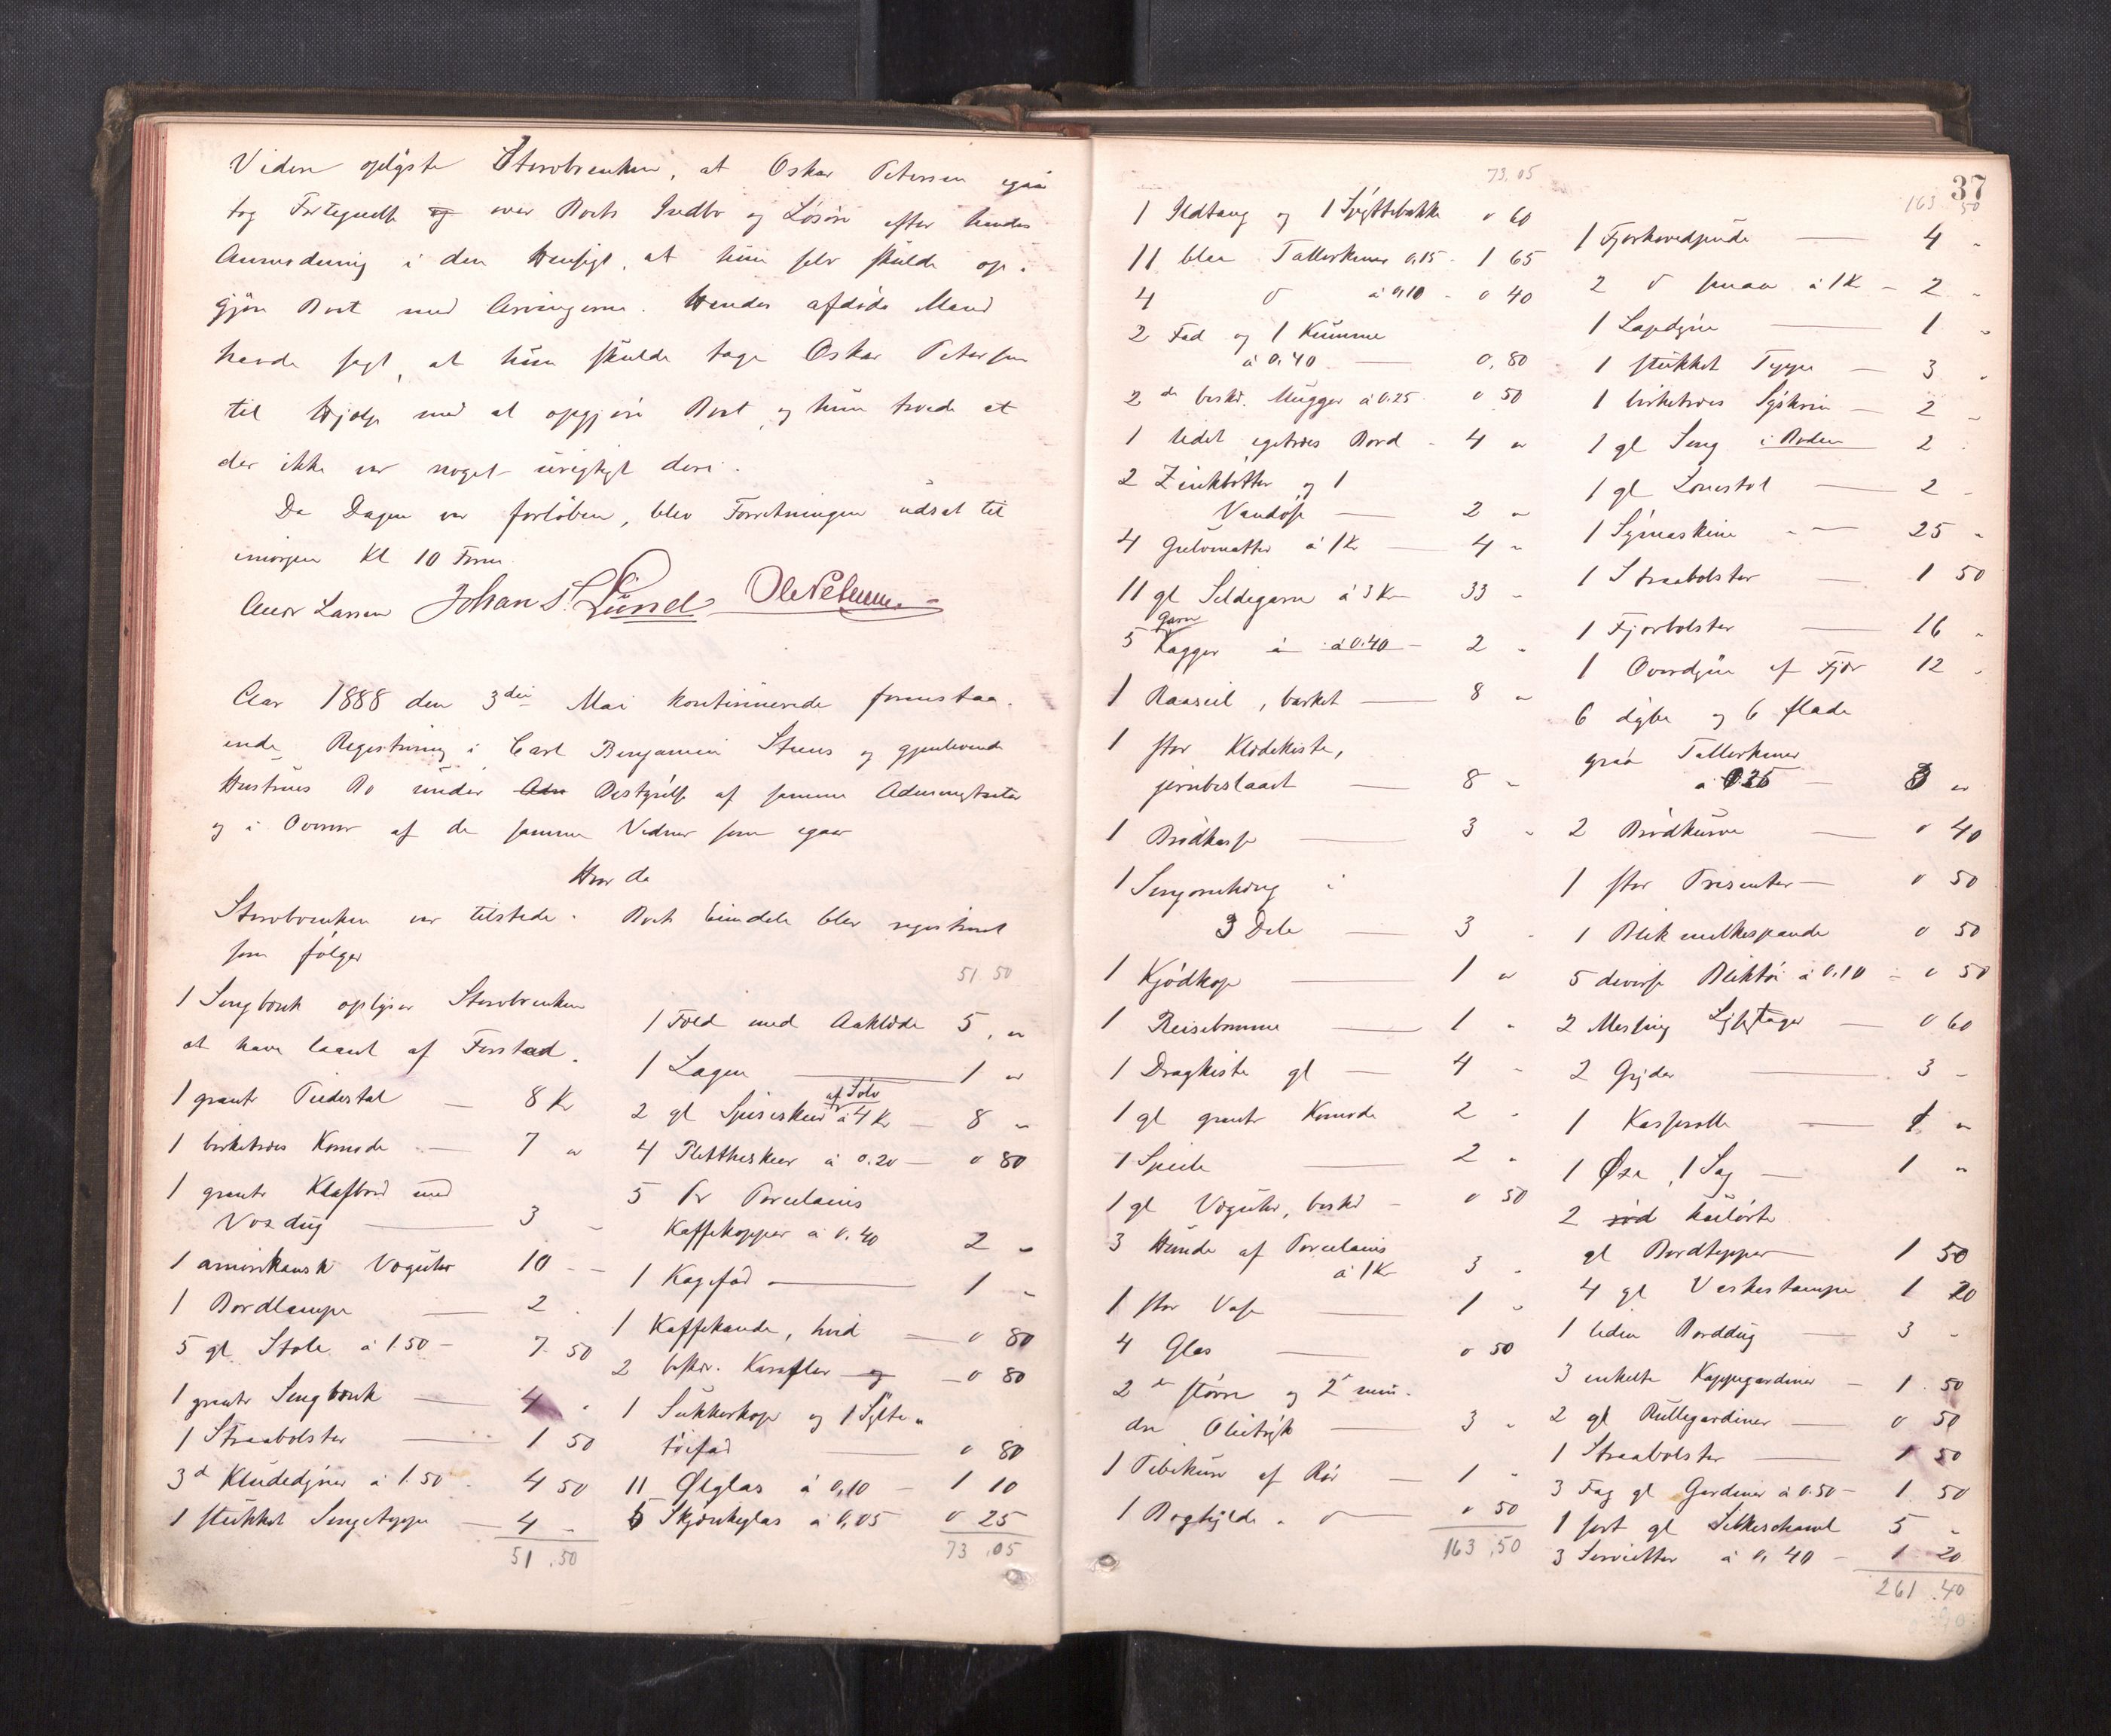 Videre oplyste Stervboenken, at Oskar Petersen igaar
tog Fortegnelse og over Boets Indbo og Løsøre efter hendes
Anmodning i den Hensigt, at hun selv skulde op-
gjøre Boet med Arvingerne. Hendes afdøde Mand
havde sagt, at hun skulde tage Oskar Petersen
til Hjælp med at opgjøre Boet, og hun troede at
der ikke var noget urigtigt deri.
Da Dagen var forløben, blev Forretningen udsat til
imorgen Kl 10 Form.
Andr Larsen Johan S. Lund Ole Petersen
Aar 1888 den 3die Mai kontinuerede forannstaa-
ende Registrering i Carl Benjamin Steens og gjenlevende
Hustrues Bo under Adm Bestyrelse af samme Administrator
og i Overvær af de samme Vidner som igaar
Hvor da
Stervboenken var tilstede. Boets Eiendele blev registreret
som følger
1 Sengbænk oplyser Stervboenken
at have laant af Forstad.
1 grantr Piedestal — 8 Kr
1 birketræes Komode — 7 "
1 grantr Klafbord med
Voxdug — 3 "
1 amerikansk Væguhr 10 "
1 Bordlampe — 2 "
5 gl Stole á 1.50 — 7 50
1 grantr Sengbænk — 4 "
1 Straabolster — 1 50
3 d Kludedyner á 1.50 4 50
1 stukket Sengetæppe — 4 "
51.50
51.50
1 Fæld med Aaklæde 5 "
1 Lagen — 1 "
2 gl Spiseskeer af Sølv á 4 Kr — 8 "
4 Pletttheskeer á 0.20 — 0 80
5 Pr Porcelains
Kaffekopper á 0.40 2 "
1 Kagefad — 1 "
1 Kaffekande, hvid — 0 80
2 beskr. Karafler og — 0 80
1 Sukkerkop og 1 Sylte-
tøifad — 0 80
11 Ølglas á 0,10 — 1 10
5 Skjænkeglas á 0,05 0 25
73.05
37
73.05
1 Ildtang og 1 Spyttebakke 0 60
11 blaa Tallerkener 0.15 1 65
4 d á 0,10 - 0 40
2 Fad og 1 Kumme
á 0.40 — 0.80
2 de beskd. Mugger á 0.25 0 50
1 lidet egetræes Bord - 4 "
2 Zinkbøtter og 1
Vandøse — 2 "
4 Gulvmatter á 1 Kr — 4 "
11 gl Sildegarn á 3 Kr 33 -
5 Garn Kagger á á 0.40 - 2 "
1 Raaseil, barket — 8 "
1 stor Klædekiste,
jernbeslaaet — 8 "
1 Brødkasse — 3 "
1 Sengomhæng i
3 Dele — 3 "
1 Kjødkop — 1 "
1 Reisetomme — 1 "
1 Dragkiste gl — 4 "
1 gl grantr Komode 2 "
1 Speile — 2 "
1 gl Væguhr, beskd — 0 50
3 Hunde af Porcelains
á 1 Kr 3 "
1 stor Vase — 1 "
4 Glas — 0 50
2 de større og 2 d min-
dre Olietryk — 3 "
1 Pibekurv af Rør — 1 "
1 Boghylde " d — 0 50
163.50
163.50
1 Fjærhovedpude — 4 "
2 d smaa á 1 Kr - 2 "
1 Lapdyne — 1 "
1 stukket Tæppe — 3 "
1 birketræes Syskrin — 2 "
1 gl Seng i Boden 2 "
1 gl Lænestol — 2 "
1 Symaskine — 25 "
1 Straabolster — 1 50
1 Fjærbolster — 16 "
1 Overdyne af Fjær 12 "
6 dybe og 6 flade
graa Tallerkener
á 0.25 — 3 "
2 Brødkurve — 0 40
1 stor Presenter — 0 50
1 Blik melkespande 0 50
5 diverse Bliktøi á 0.10 — 0 50
2 Messing Lysestager — 0 60
2 Gryder — 3 "
1 Kasserolle — 1 "
1 Øxe, 1 Sag — 1 "
2 rød kulørte
gl Bordtepper — 1 50
4 gl Vaskestamper 1 20
1 liden Borddug — 3 "
3 enkelte Kappegardiner — 1 50
2 gl Rullegardiner — 0 50
1 Straabolster — 1 50
3 Fag gl Gardiner á 0.50 — 1 50
1 sort gl Silkeschawl 5 "
3 Servietter á 0,40 — 1 20
261.40